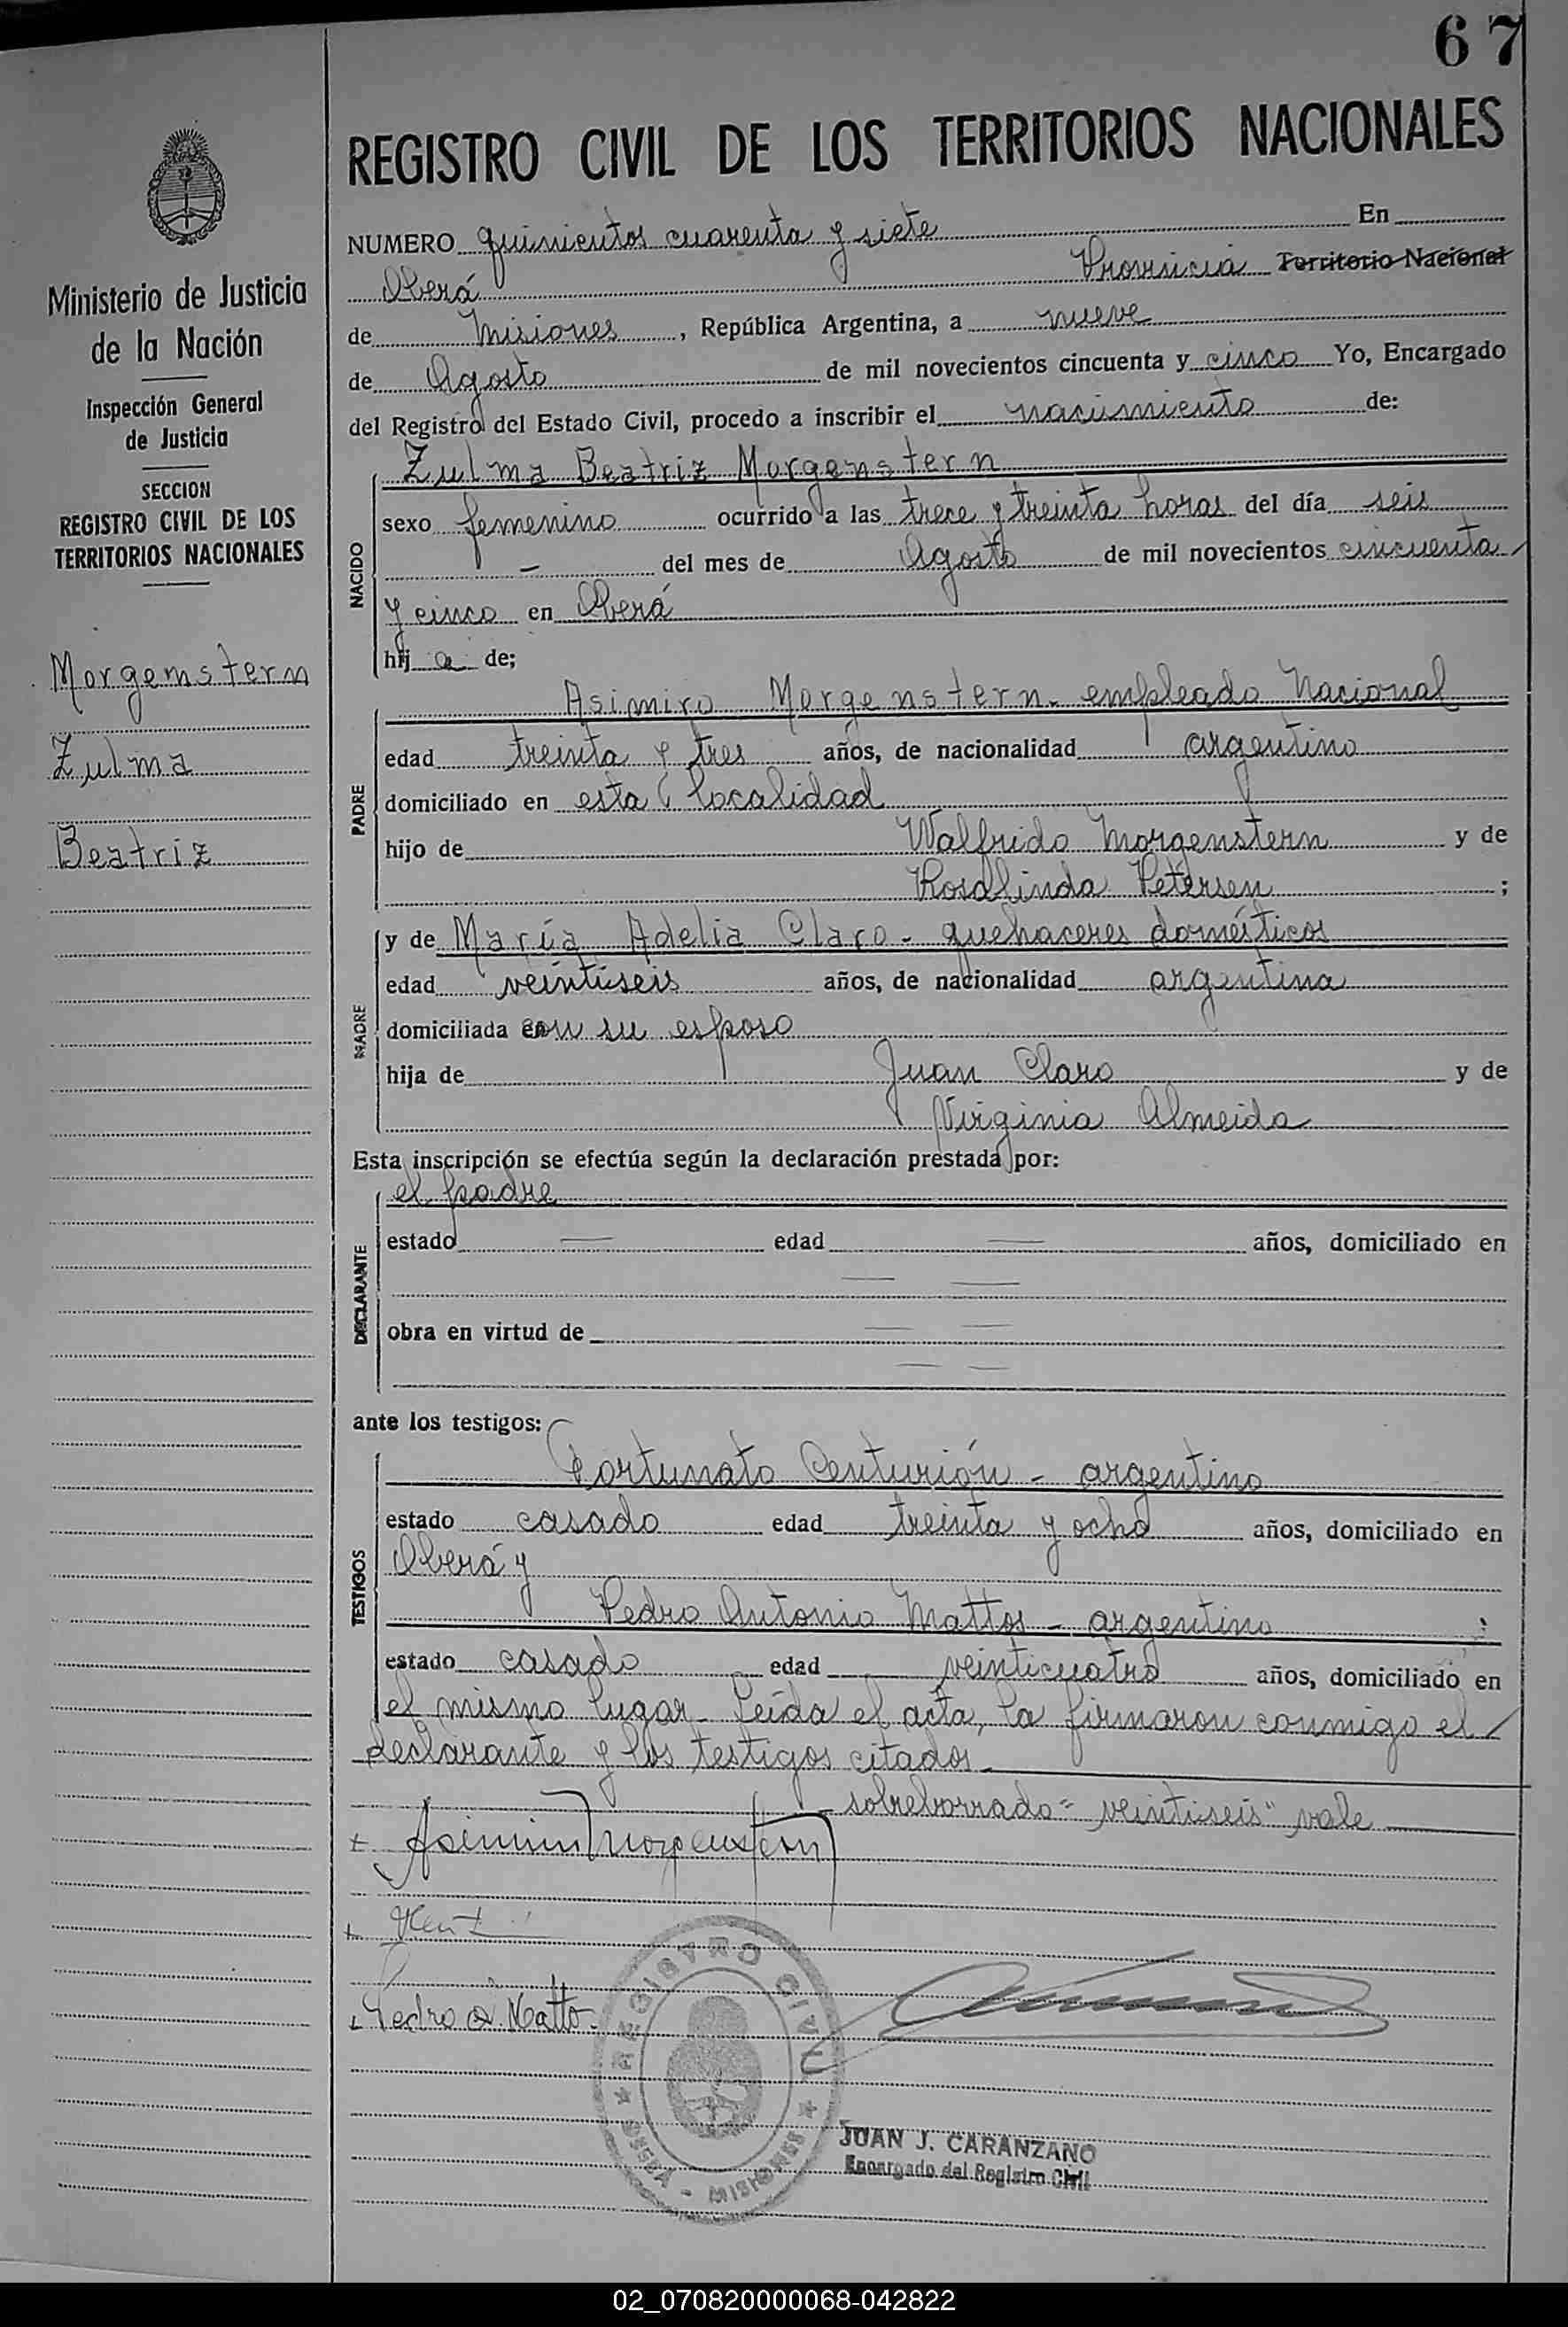 67
REGISTRO CIVIL DE LOS TERRITORIOS NACIONALES
Ministerio de Justicia
de la Nación
Inspección General
de Justicia
SECCION
REGISTRO CIVIL DE LOS
TERRITORIOS NACIONALES
Morgemstern
Zulma
Beatriz
NUMERO quinientos cuarenta y siete En
Oberá Provincia Territorio Nacional
de Misiones, República Argentina, a nueve
de Agosto de mil novecientos cincuenta y cinco Yo, Encargado
del Registro del Estado Civil, procedo a inscribir el nacimiento de:
NACIDO
Zulma Beatriz Morgenstern
sexo femenino ocurrido a las trece y treinta horas del día seis
— del mes de Agosto de mil novecientos cincuenta
y cinco en Oberá
hij a de;
PADRE
Asimiro Morgenstern. empleado Nacional
edad treinta y tres años, de nacionalidad argentino
domiciliado en esta localidad
hijo de Walfrido Morgenstern y de
Rosalinda Petersen ;
MADRE
y de María Adelia Claro - quehaceres domésticos
edad veintiseis años, de nacionalidad argentina
domiciliada con su esposo
hija de Juan Claro y de
Virginia Almeida
Esta inscripción se efectúa según la declaración prestada por:
DECLARANTE
el padre
estado — edad — años, domiciliado en
— —
obra en virtud de — —
— —
ante los testigos:
TESTIGOS
Fortunato Centurión - argentino
estado casado edad treinta y ocho años, domiciliado en
Oberá y
Pedro Antonio Mattos - argentino ;
estado casado edad veinticuatro años, domiciliado en
el mismo lugar. Leída el acta, la firmaron conmigo el
declarante y los testigos citados.
sobreborrado "veintiseis" vale
Asimiro Morgenstern
Pedro A. Matto
REGISTRO CIVIL
OBERA - MISIONES
JUAN J. CARANZANO
Encargado del Registro Civil
02_070820000068-042822